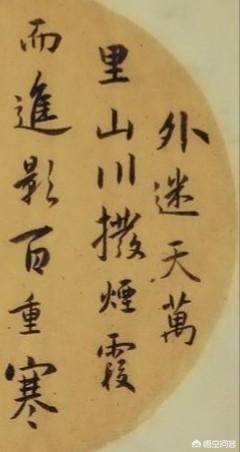 外迷天萬
里山川撥煙霞
而進影百重寒
悟空问答